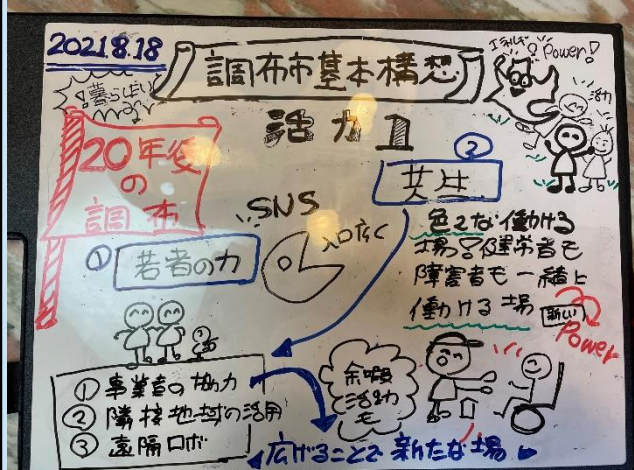 2021.8.18
調布市基本構想
エネルギー Power!
活力
暮らしたい
活力 1
20年後
の
調布
② 共生
SNS
入口広く
① 若者の力
色々な働ける
場 健常者も
障害者も一緒に
働ける場
新しい
Power
① 事業者の協力
② 隣接地域の活用
③ 遠隔ロボ
余暇
活動
も
広げることで 新たな場